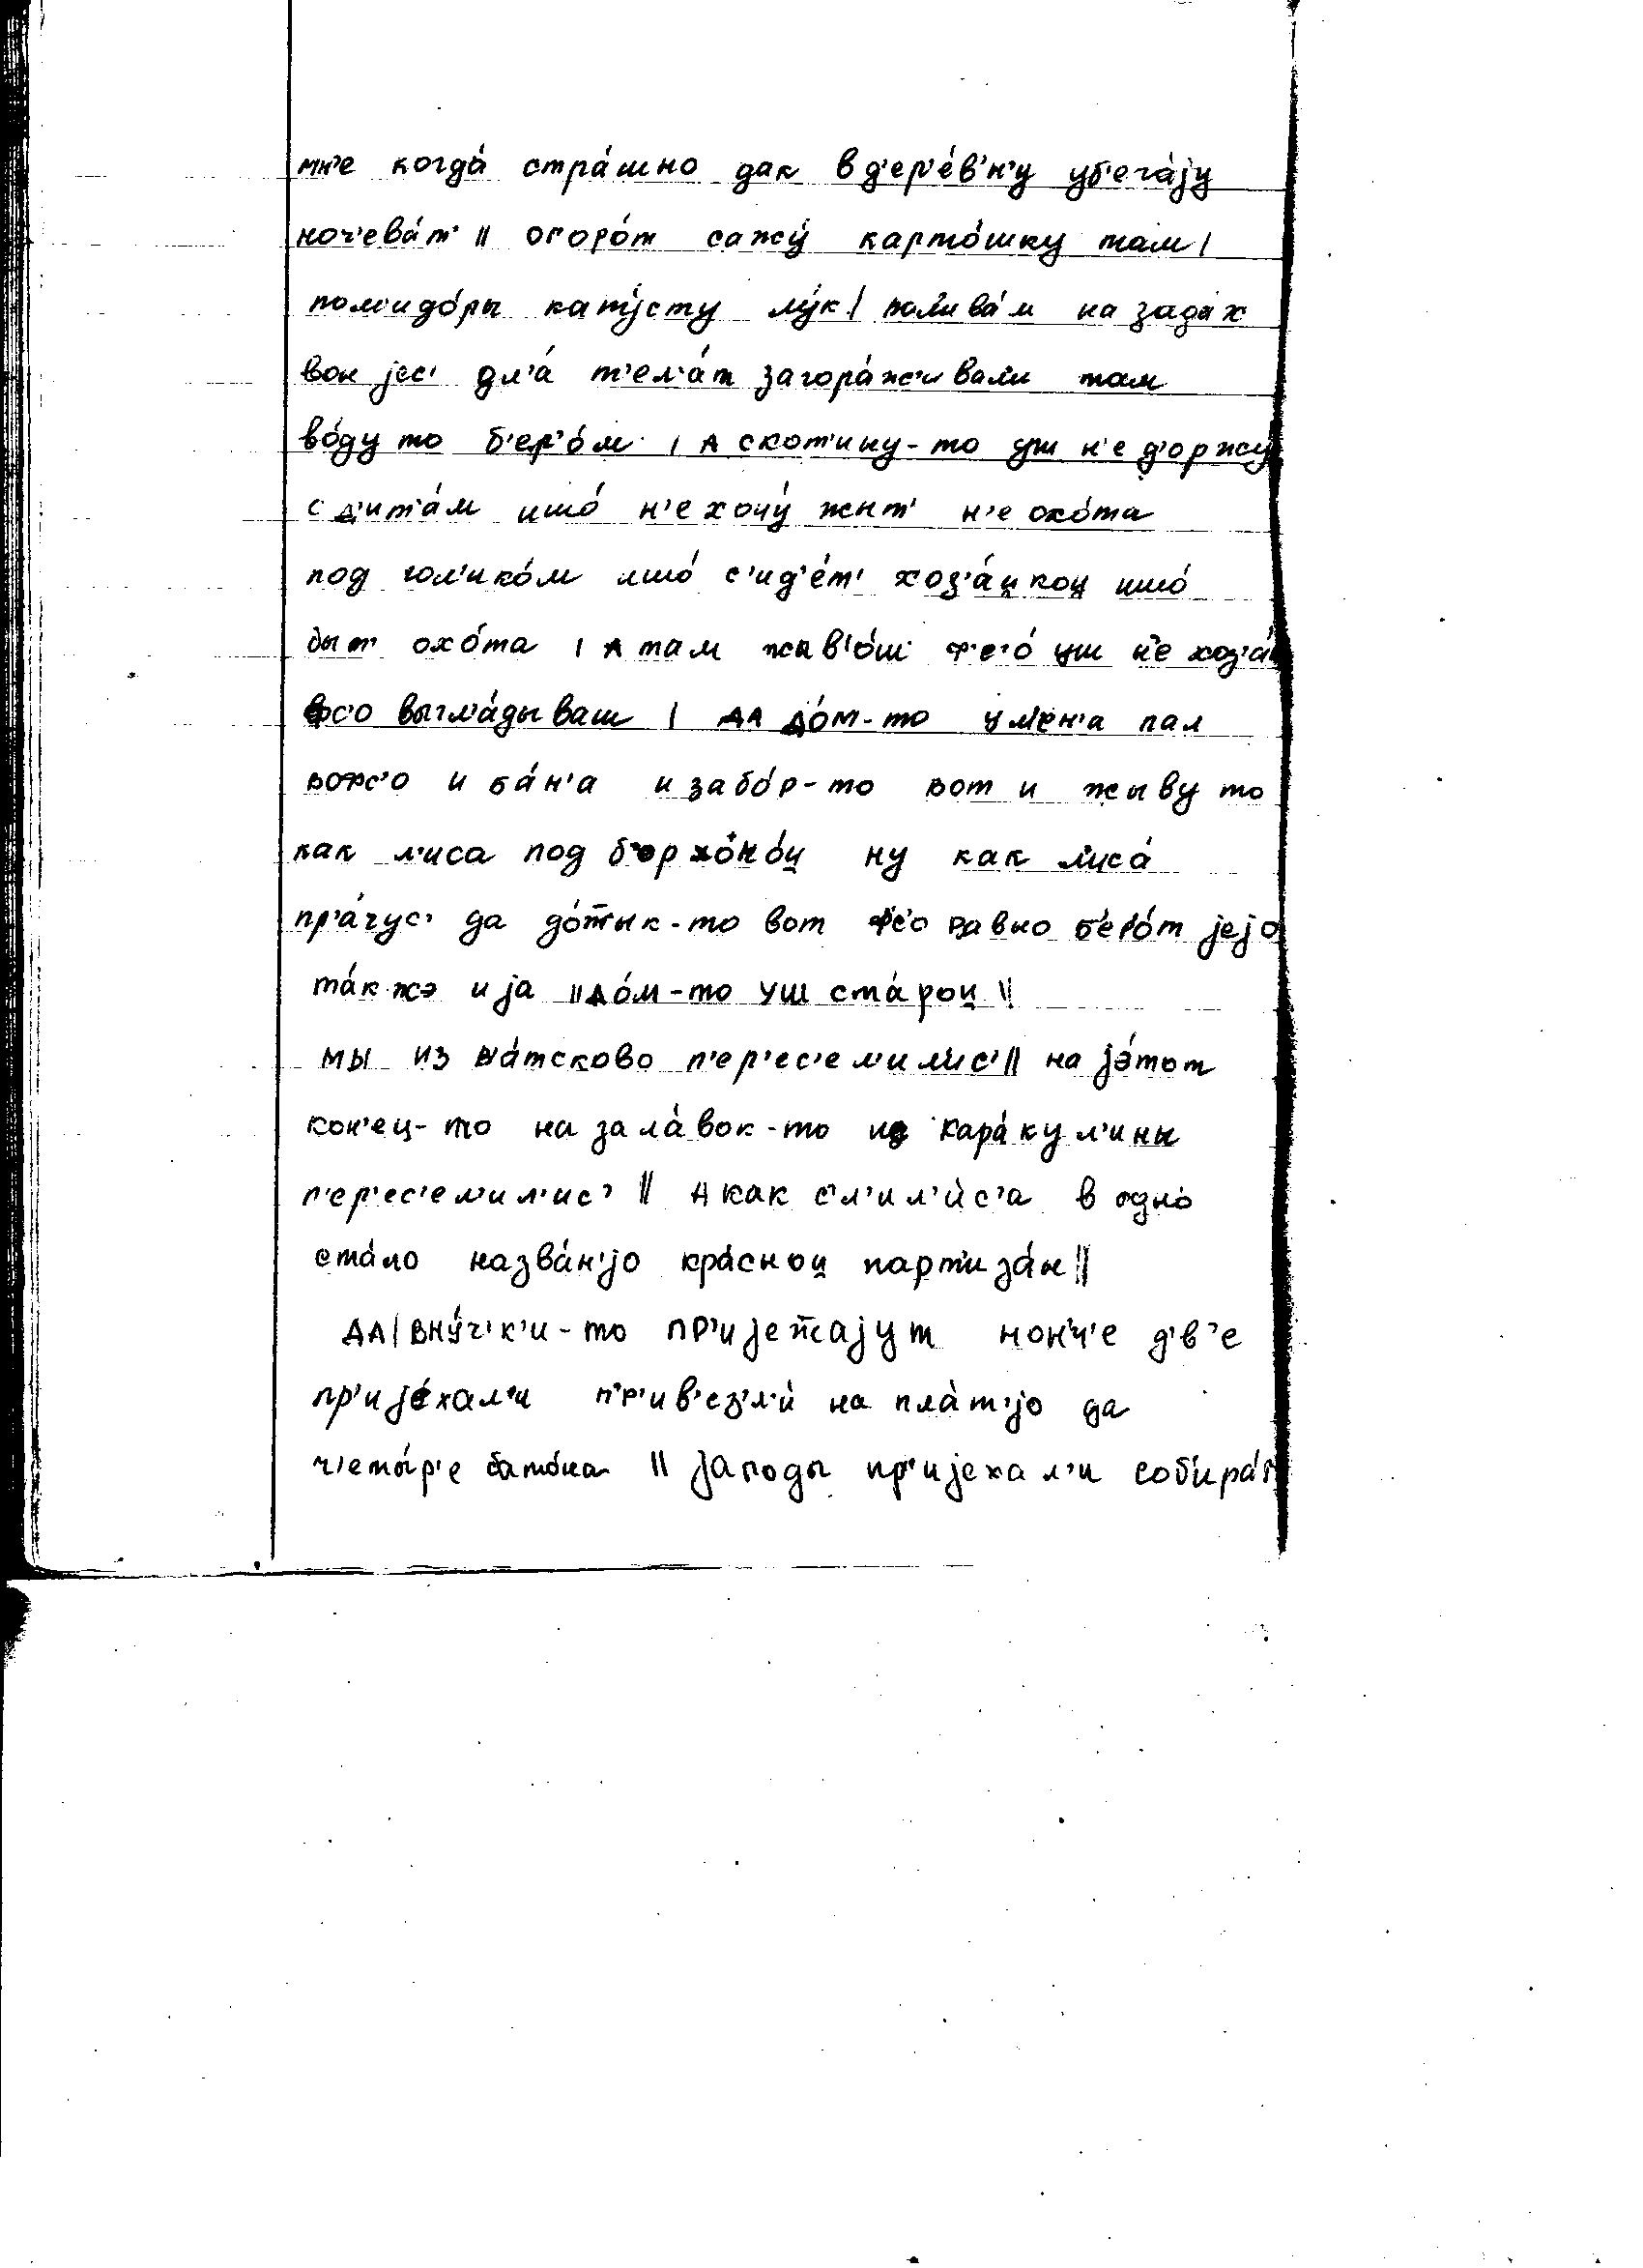 мн'е когда́ стра́шно дак в д'ер'е́в'н'у уб'ега́jу
ноч'ева́т' || огоро́т сажу́ карто́шку там |
пом'идо́ры капу́сту лу́к | пол'ива́м на зада́х
вон jес' дл'а́ т'ел'а́т загора́жывал'и там
во́ду то б'ер'о́м | А скот'ину-то уш н'е д'оржу
с д'ит'а́м ишо́ н'е хочу́ жыт' н'е охо́та
под гол'ико́м ишо́ с'ид'е́т' хоз'а́ɪ̯коɪ̯ ишо́
быт' охо́та | А там жыв'о́ш ф'с'о́ уш н'е
фс'о выгл'а́дываш | ДА ДО́М-то у м'ен'а пал
вофс'о и ба́н'а и забо́р-то вот и жыву то
как л'иса под ну как л'иса́
пр'а́чус' да то вот фс'о равно б'ер'о́т jеjо
та́к жэ и jа || ДО́М-то УШ ста́роɪ̯ ||
мы из в'а́тсково п'ер'ес'ел'ил'ис' || на jэ́тот
кон'ец-то на зала́вок-то из кара́кул'ины
п'ер'ес'ел'ил'ис' || А как с'л'ил'и́с'а в одно́
ста́ло назва́н'jо кра́сноɪ̯ парт'иза́н ||
ДА | ВНУ́Ч'К'И-то ПР'Иjежжаjут нон'ч'е д'в'е
пр'иjе́хал'и п'р'ив'ез'л'и́ на пла́т'jо да
ч'еты́р'е бато́на || jагоды пр'иjехал'и